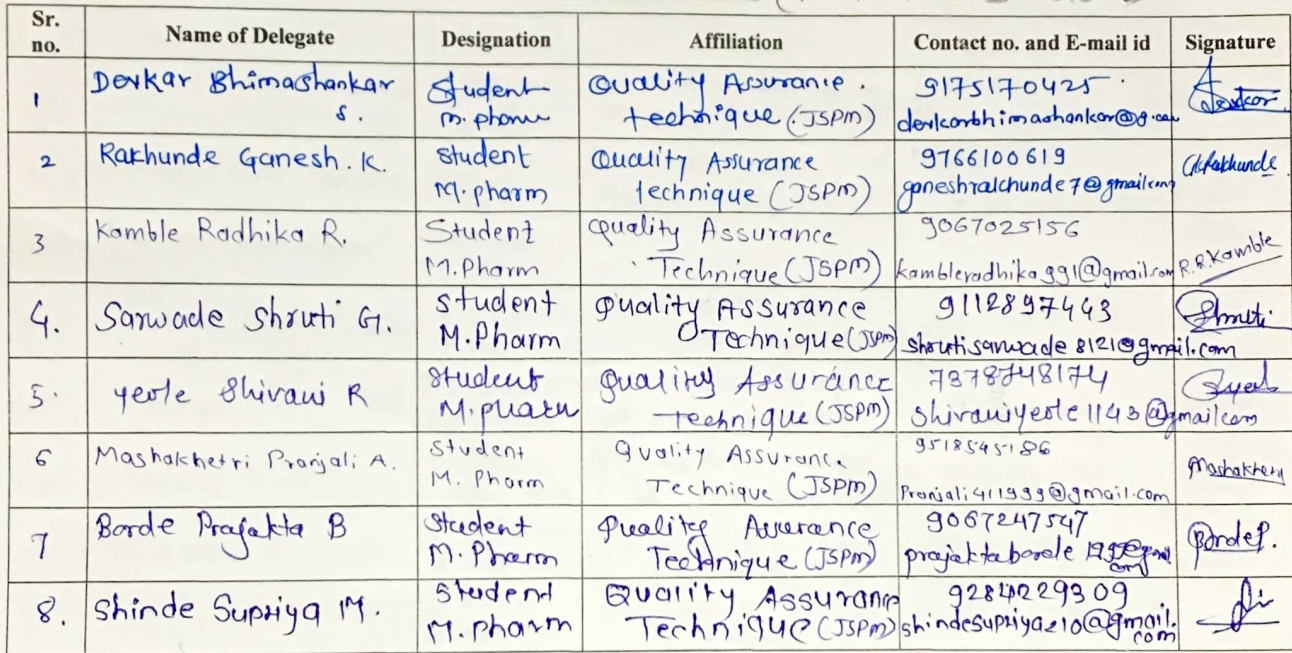 Sr. no. Name of Delegate Designation Affiliation Contact no. and E-mail id Signature
1 Devkar Bhimashankar S. Student M. pharm Quality Assurance technique (JSPM) 9175170425 devkarbhimashankar@g.com Devkar
2 Rakhunde Ganesh. K. Student M. pharm Quality Assurance technique (JSPM) 9766100619 ganeshrakhunde7@gmail.com G.K.Rakhunde
3 Kamble Radhika R. Student M.Pharm Quality Assurance Technique (JSPM) 9067025156 kambleradhika991@gmail.com R.R.Kamble
4. Sarwade Shruti G. Student M.Pharm Quality Assurance Technique (JSPM) 9112897443 shrutisarwade8121@gmail.com Shruti
5. Yerole Shivani R Student M.pharm Quality Assurance Technique (JSPM) 7378748174 shivaniyerole1143@gmail.com
6 Mashakhetri Pranjali A. Student M. Pharm Quality Assurance Technique (JSPM) 9518545186 Pranjali411999@gmail.com Mashakhetri
7 Borde Prajakta B Student M. Pharm Quality Assurance Technique (JSPM) 9067247547 BordeP.
8. Shinde Supriya M. Student M. pharm Quality Assurance Technique (JSPM) 9284229309 shindesupriya210@gmail.com